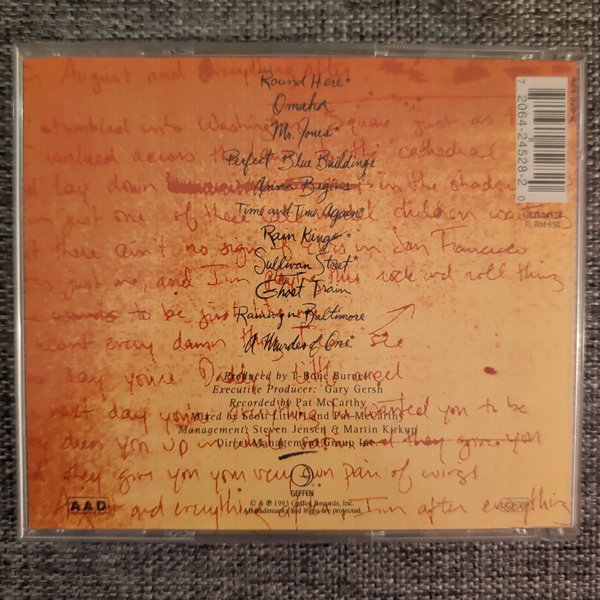 Round Here*
Omaha
Mr. Jones*
Perfect Blue Buildings
Anna Begins
Time and Time Again*
Rain King*
Sullivan Street*
Ghost Train
Raining in Baltimore
A Murder of One*
Produced by T-Bone Burnett
Executive Producer: Gary Gersh
Recorded by Pat McCarthy
Mixed by Scott Litt and Pat McCarthy
Management: Steven Jensen & Martin Kirkup
Direct Management Group Inc.
GEFFEN
© & ℗ 1993 Geffen Records, Inc.
All trademarks and logos are protected.
AAD
7 20642-4528-2 0
August and everything after
stumbled into Washington Square just as
walked across the cathedral
lay down in the shadow
just one of these children
there ain't no sign in San Francisco
just one, and I'm this rock and roll thing
to be just
want every damn thing see
day you're Daddy's angel
next day you're wanted you to be
dress you up in they give you
they give you your very own pair of wings
and everything after I'm after everything